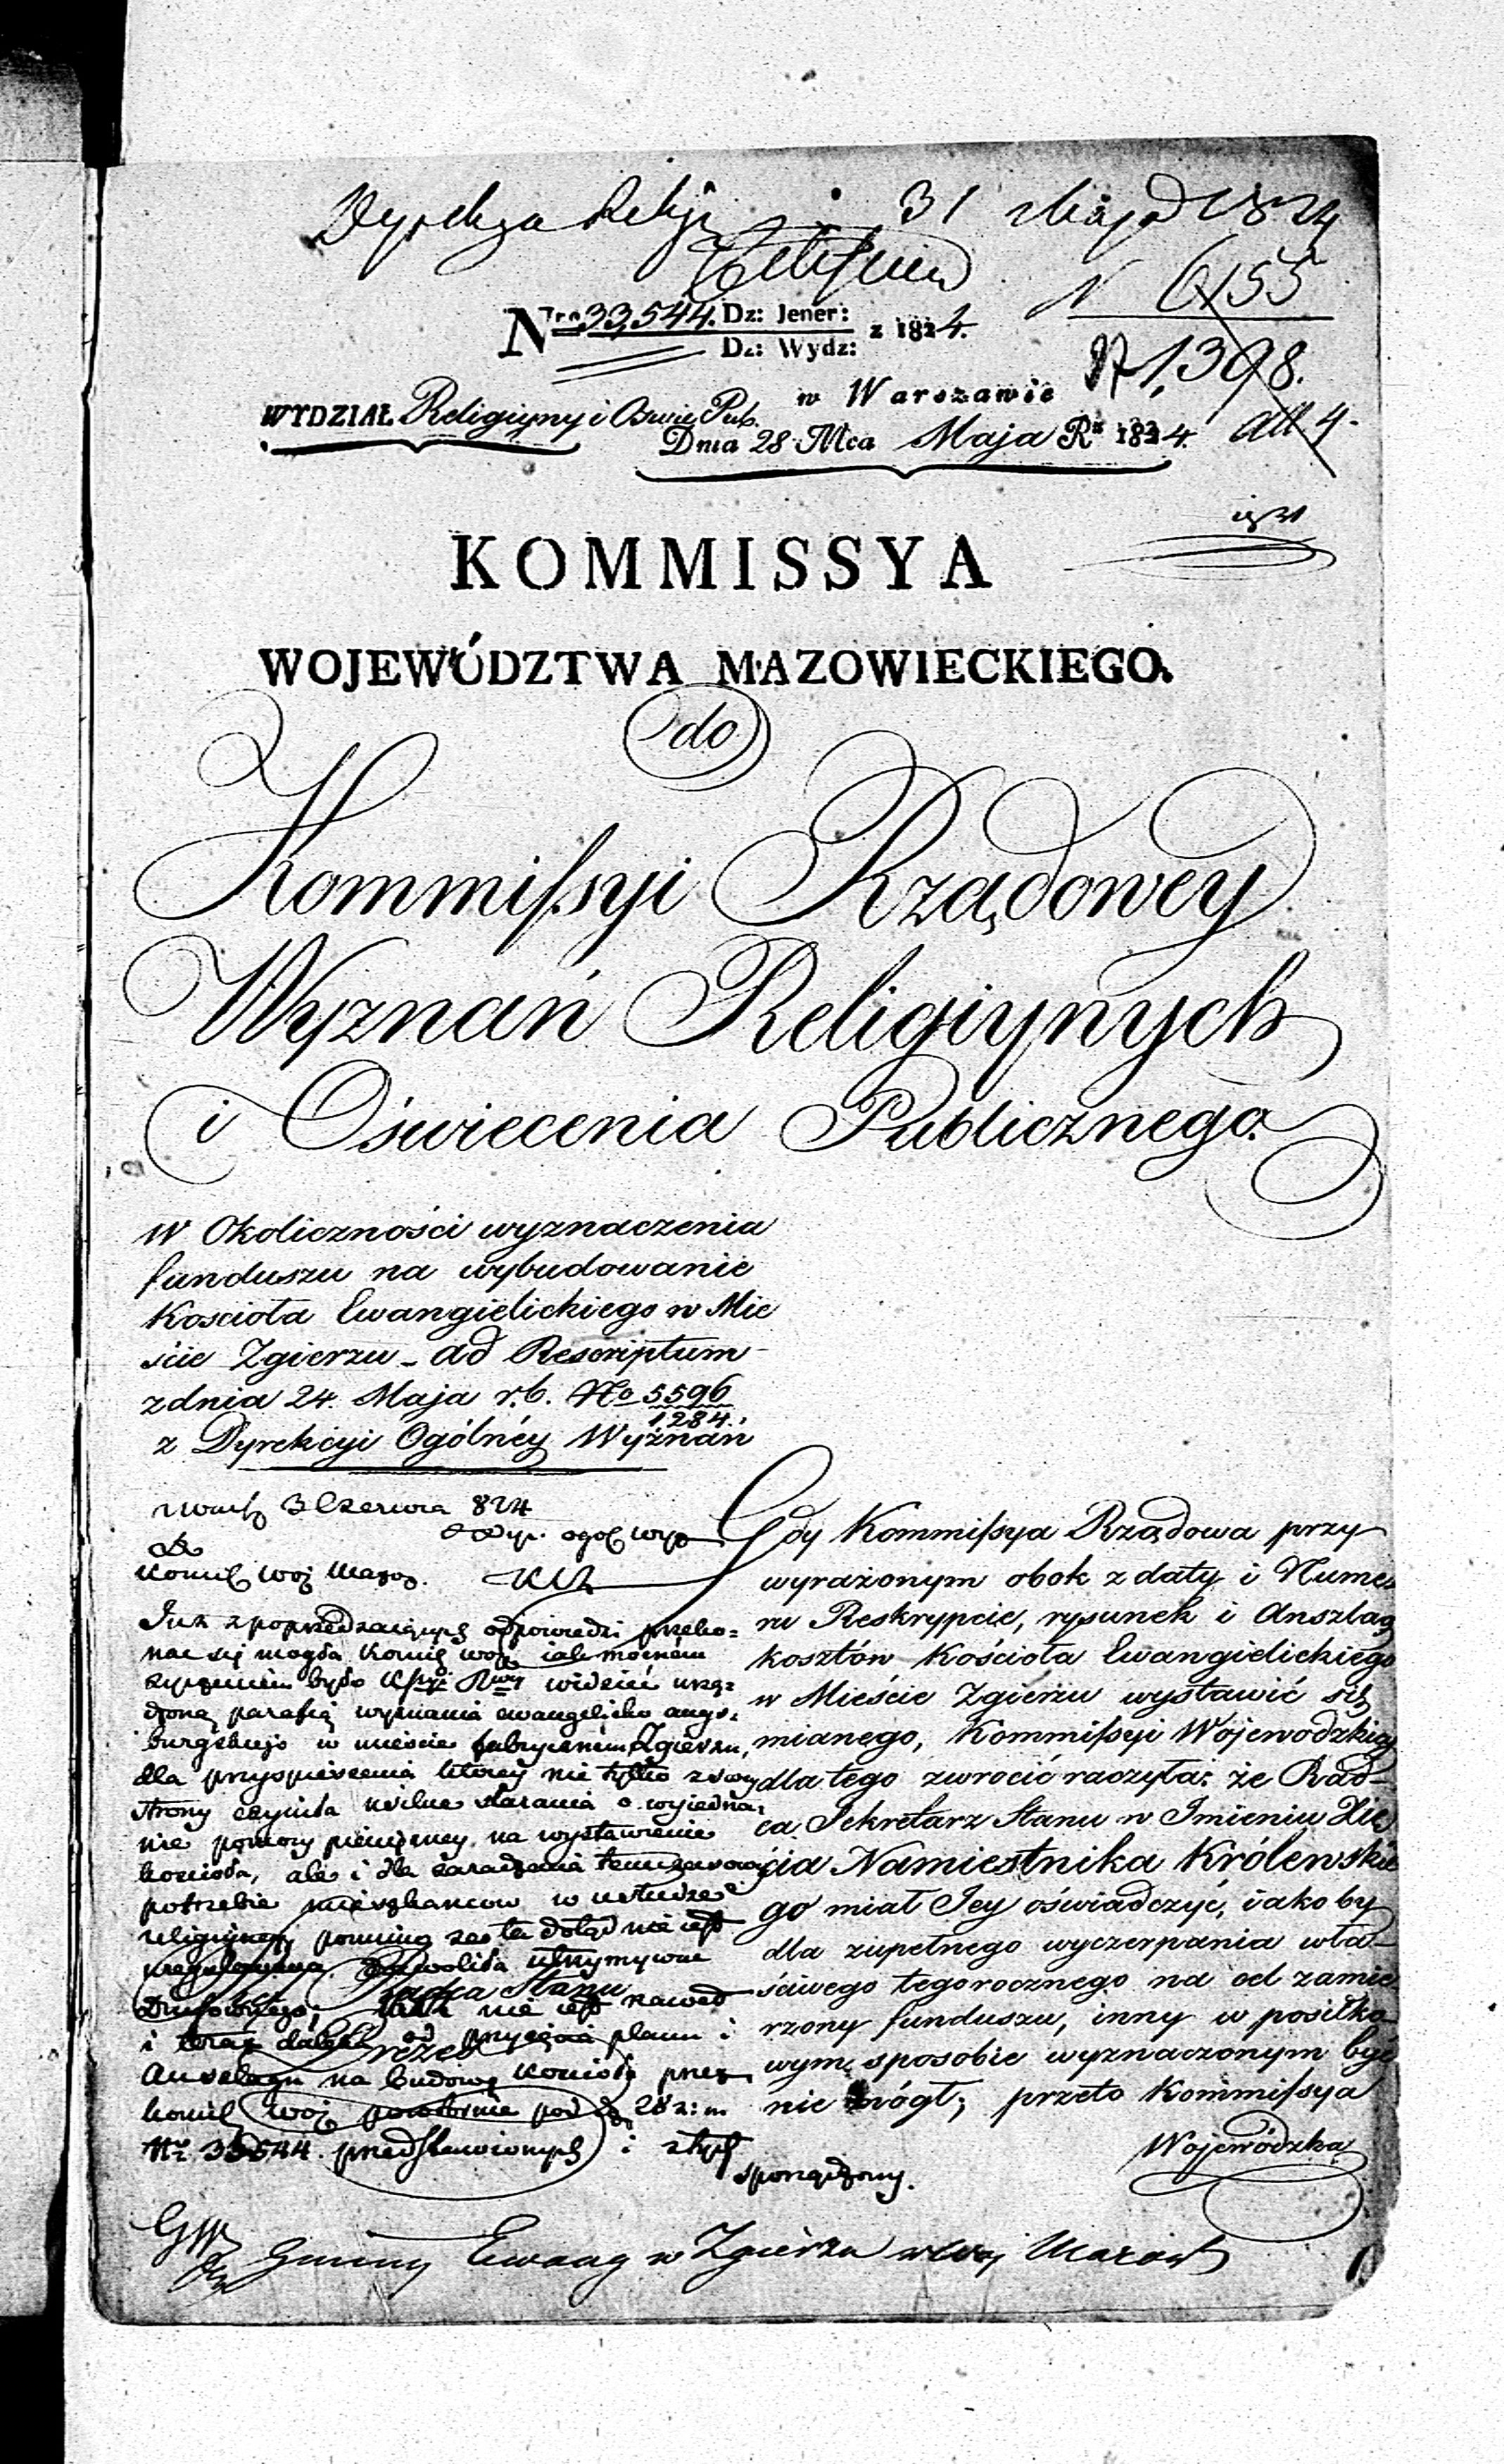 31 Maja 1824
N 6155
Nro 33,544. Dz: Jener:
Dz: Wydz: z 1824.
1,398.
WYDZIAŁ Religiyny i Oświe. Pub. w Warszawie
Dnia 28 Mca Maja Rx 1824.
KOMMISSYA
WOJEWÓDZTWA MAZOWIECKIEGO.
do
Kommissyi Rządowey
Wyznań Religiynych
i Oświecenia Publicznego.
W Okoliczności wyznaczenia
funduszu na wybudowanie
Kościoła Ewangielickiego w Mie
ście Zgierzu - ad Rescriptum
z dnia 24. Maja r.b. No 5596
1284.
z Dyrekcyi Ogólnéy Wyznań
3 Czerwca 824
Do
Kommiss Woj Mazow.
Już z poprzedzaiących odpowiedzi przeko=
nać się mogła Kommiss woj iak mocném
życzeniem było widzieć urzą=
dzoną parafią wyznania ewangelicko augs=
burgskiego w mieście fabrycznem Zgierzu,
dla przyspieszenia którey nie tylko z swey
strony czyniła usilne starania o wyjedna=
nie pomocy pieniężney na wystawienie
kościoła, ale i dla zaradzenia
potrzebie mieszkańców w
religiyney, pomimo że ta dotąd nie iest
dozwoliła utrzymywać
nie iest nawet
i od przyięcia planu i
Anszlagu na budowę kościoła przez
Kommiss woj powtórnie pod d. 28 z: m.
Nr 33544. przedstawionych i z tych
sporządzony.
Radca Stanu
Prezes
Gdy Kommissya Rządowa przy
wyrażonym obok z daty i Nume
ru Reskrypcie, rysunek i Anszlag
kosztów Kościoła Ewangielickiego
w Mieście Zgierzu wystawić się
mianego, Kommissyi Wojewódzkiey
dla tego zwrócić raczyła; że Rad-
ca Sekretarz Stanu w Imieniu Xię
cia Namiestnika Królewskie
go miał Jey oświadczyć, iakoby
dla zupełnego wyczerpania wła-
ściwego tegorocznego na cel zamie
rzony funduszu, inny w posiłko
wym sposobie wyznaczonym być
nie mógł; przeto Kommissya
Wojewódzka
Gminy Ewang w Zgierzu w Woj Mazow